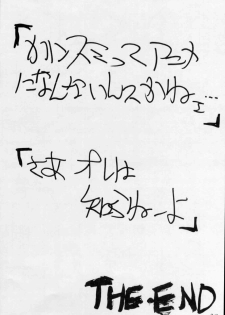 「カリンスミってアニメ
になんないんスかねェ…」
「さあオレは
知らねーよ」
THE・END